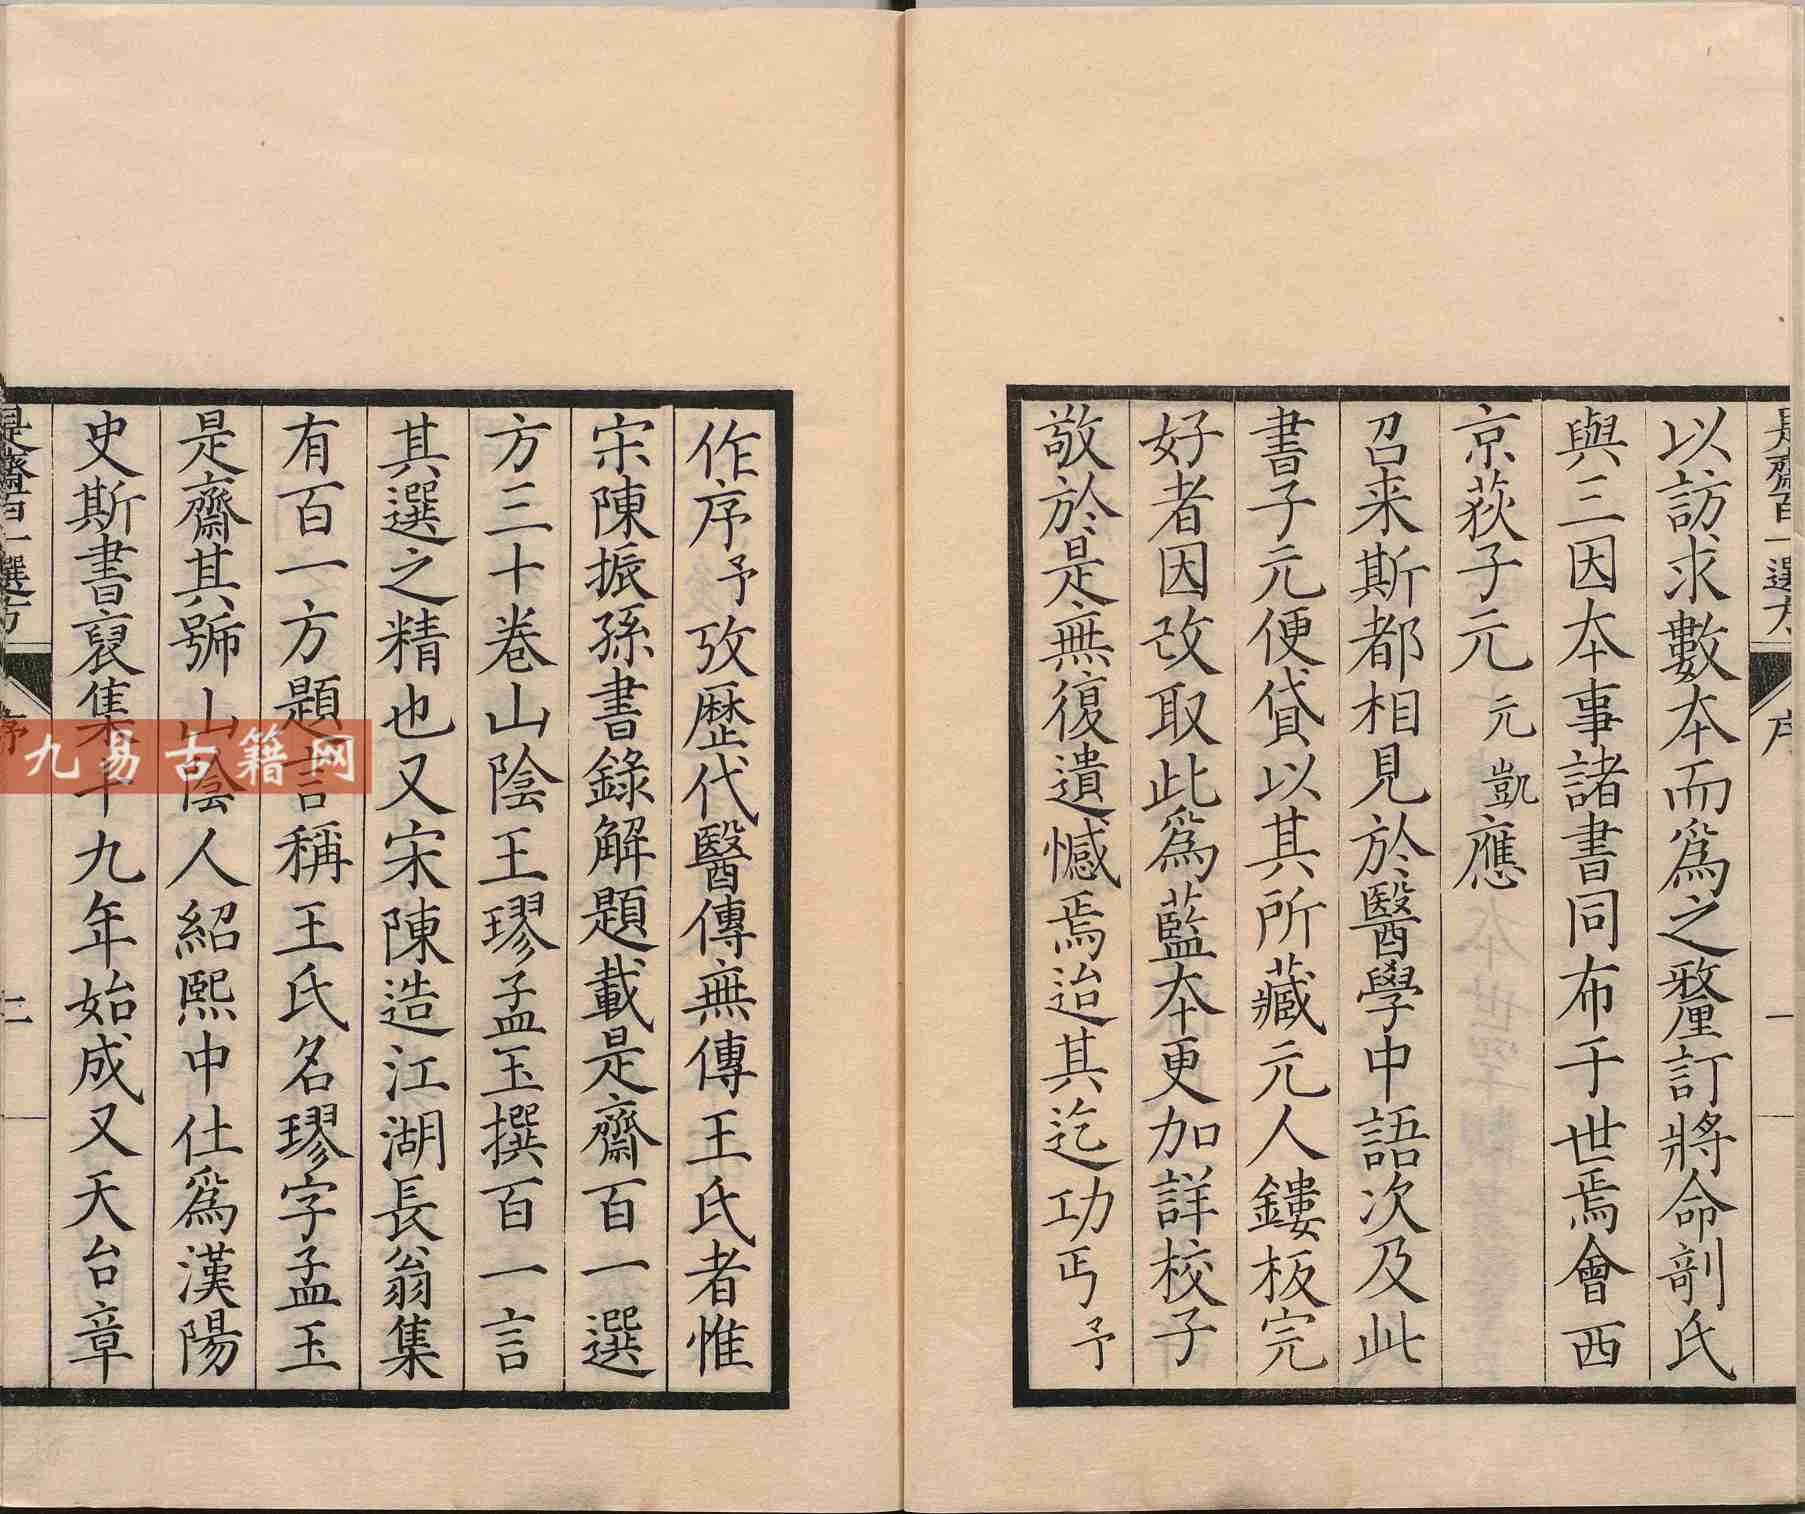 是齋百一選方 序 一
以訪求數本而爲之釐訂將命剞氏
與三因本事諸書同布于世焉會西
京荻子元元凱應
召来斯都相見於醫學中語次及此
書子元便貸以其所藏元人鏤板完
好者因改取此爲藍本更加詳校子
敬於是無復遺憾焉迨其迄功丐予
作序予攷歷代醫傳無傳王氏者惟
宋陳振孫書錄解題載是齋百一選
方三十卷山陰王璆孟玉撰百一言
其選之精也又宋陳造江湖長翁集
有百一方題言稱王氏名璆字孟玉
是齋其號山陰人紹熙中仕爲漢陽
史斯書裒集十九年始成又天台章
是齋百一選方 序 二
九易古籍网